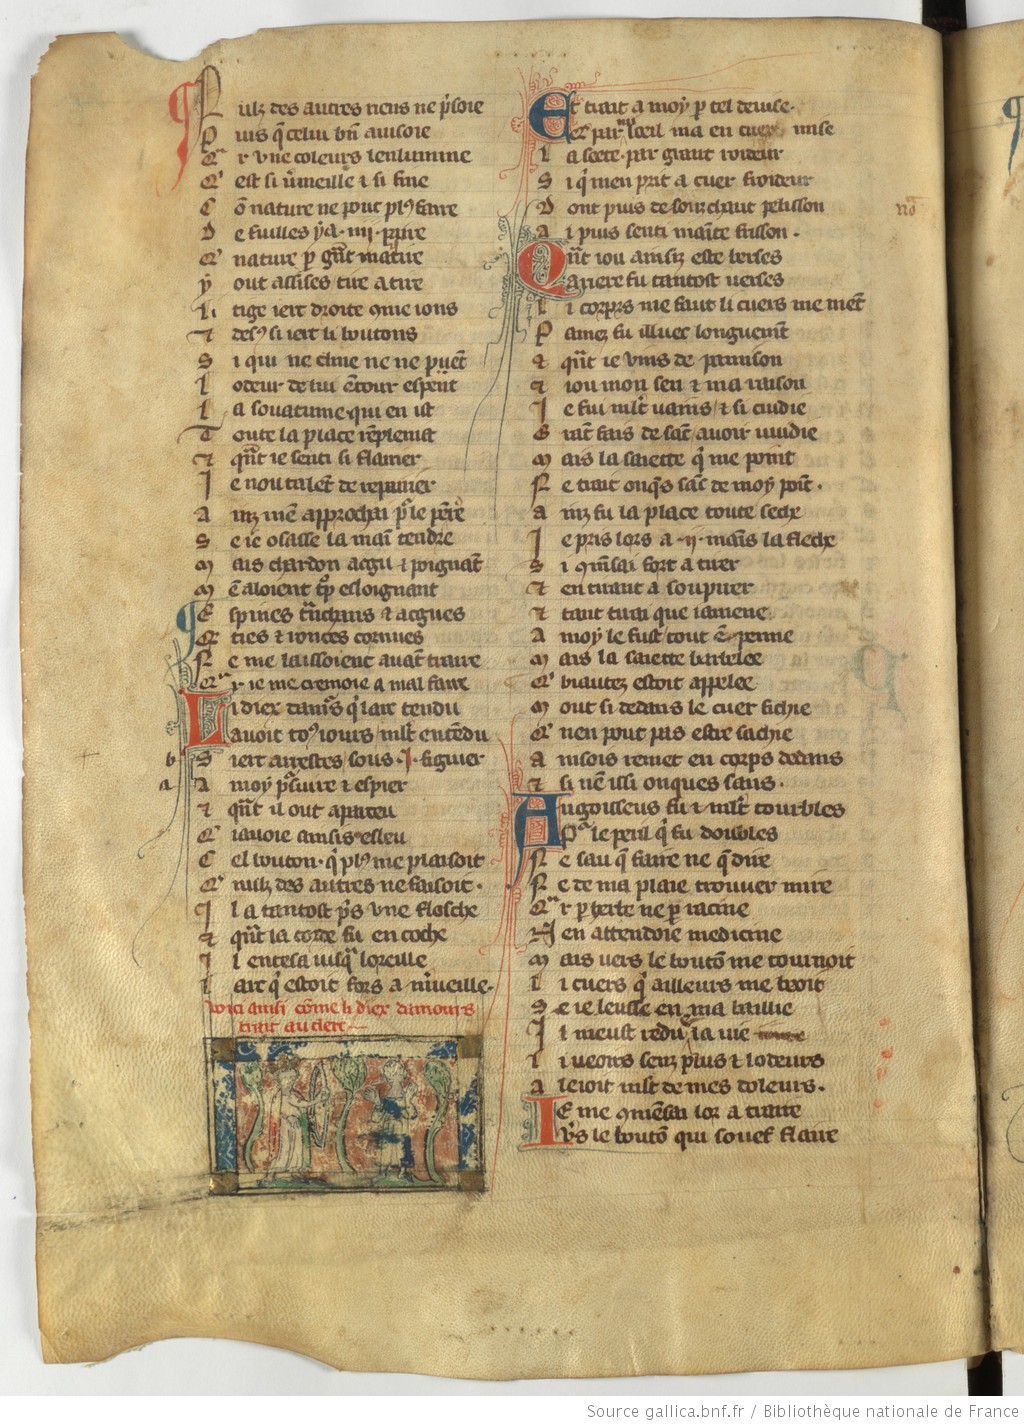 N ulz des autres riens ne p̃soie
P uis q̃ celui bñ auisoie
Q r vne coleurs lenlumine
Q' est si v̉meille ⁊ si fine
C õ nature ne pout pl⁹ faire
D e fuilles y a .iiii. paire
Q' nature p gñt matire
y out assises tire a tire
L i tige iert droite ꝯme ions
⁊ des⁹ si iert li boutons
S i qui ne cline ne ne pent
L odeur de lui ẽtour espent
L a souatume qui en ist
T oute la place rẽplenist
⁊ qñt ie senti si flairer
J e noi talẽt de repairier
A inz mẽ approchai p̉ le pẽre
S e ie osasse la maĩ tendre
M ais chardon acgu ⁊ poignãt
M ẽ aloient tp̃ esloignant
E spines trẽchans ⁊ acgues
Q rties ⁊ ronces cornues
N e me laissoient auãt traire
Q r ie me cremoie a mal faire
Li diex damrs q̉ larc tendu
Auoit to⁹ iours mlt entẽdu
b S iert arrestes sous .j. figuier
a A moy p̃suire ⁊ espier
⁊ qñt il out aparceu
Q' iauoie ainsis esleu
C el bouton q̉ pl⁹ me plaisoit
Q' nulz des autres ne faisoit.
J l a tantost p̉s vne flosche
⁊ qñt la corde fu en coche
J l entesa iusq̃ loreille
L arc q̉ estoit fors a m̉ueille.
voici ainsi cõme li diex damours
trait au clerc
Et trait a moy p tel deuise.
Q' par my loeil ma en cuer mise
L a seete par grant roideur
S i q̉ men prit a cuer froideur
D ont puis desouz chaut pelisson
A i puis senti mainte frisson.
Qñt iou ainsiz este berses
Arriere fu tantost verses
L i corps me faut li cuers me mẽt
P amez fu illuec longuemt
⁊ qñt ie vins de pamison
⁊ iou mon sen ⁊ ma raison
J e fui mlt vains ⁊ si cuidie
G rãt fais de sãc auoir vuidie
M ais la saiette q̉ me point
N e trait onq̃s sãc de moy poit.
A inz fu la place toute seche
J e pris lors a .ii. mains la fleche
S i ꝯmẽsai fort a tirer
⁊ en tirant a soupirer
⁊ tant tirai que iamene
A moy le fust tout ẽpenne
M ais la saiette barbelee
Q' biautez estoit appelee
M out si dedans le cuer fichie
Q' nen pout pas estre sachie
A insois remet en corps dedans
⁊ si nẽ issi onques sans.
Angoisseus fu ⁊ mlt tourbles
Pour le peril q̉ fu doubles
N e sau q̃ faire ne q̃ dire
N e de ma plaie trouuer mire
Q r p herbe ne p racine
N en attendoie medicine
M ais vers le boutõ me tournoit
L i cuers q̉ ailleurs me beoit
S e ie leusse en ma baillie
J l meust redue la vie
L i veoirs senz plus ⁊ lodeurs
A lejoit mlt de mes doleurs.
JE me ꝯmẽsai lor a traire
Vs le boutõ qui souef flaire
Source gallica.bnf.fr / Bibliothèque nationale de France